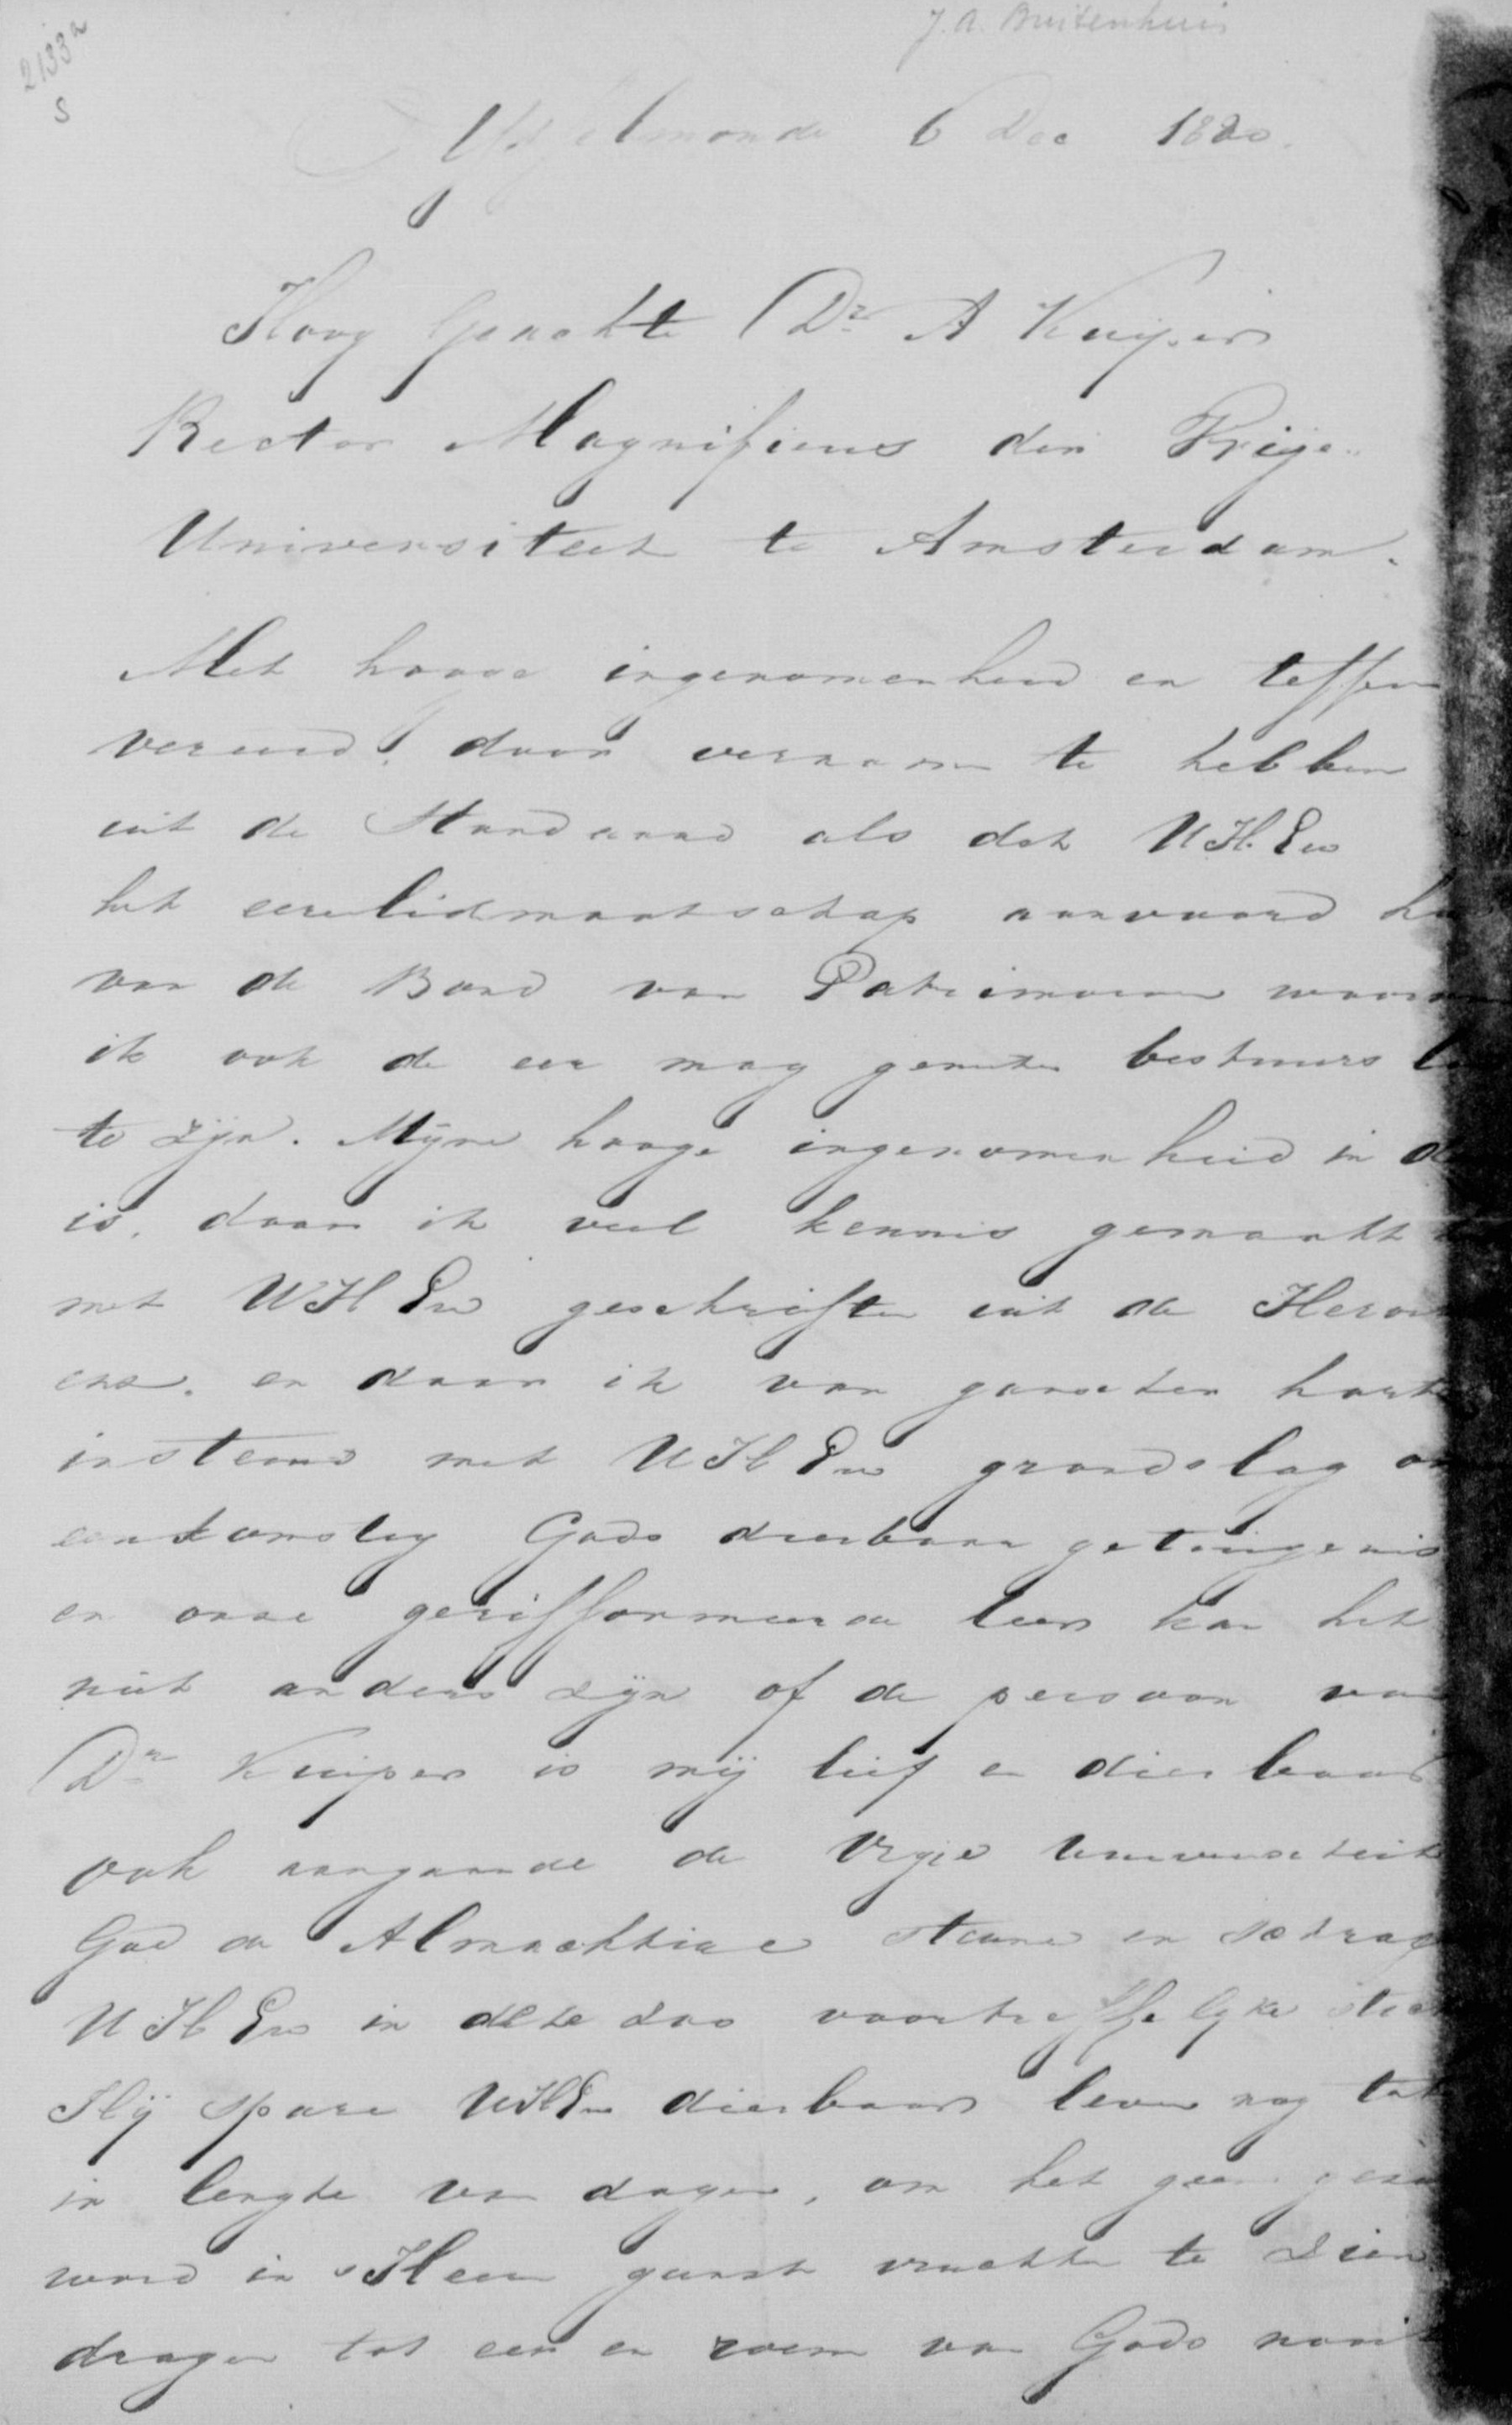 J. A. Buitenhuis
2133a
S
Ysselmonde 6 Dec 1880.
Hoog Geachte Dr A Kuijper
Rector Magnificus der Vrije
Universiteit te Amsterdam.
Met hooge ingenomenheid en teffens
vereerd, door vernaam te hebben
uit de Standaard als dat UH.Ew
het eerelidmaatschap aanvaard
van de Bond van Patrimonium
ik ook de eer mag genieten bestuurs
te zijn. Mijne hooge ingenomenheid in
is, daar ik veel kennis gemaakt
met UH Ew geschriften uit de Heraut
enz. en daar ik van ganscher harte
instemd met UH Ew grondslag
Gods dierbaar getuigenis
en onze gerifformeerde leer kan het
niet anders zijn of de persoon van
Dr Kuiper is mij lief en dierbaar
ook aangaande de Vrije Universiteit
God de Almachtige steune en schrage
UH Ew in deze voortreffelijke
Hij spare UHEw dierbaar leven nog tot
in lengte van dagen, om het geen
word in sHeeren gunst vruchten te zien
dragen tot eer en roem van Gods nooit